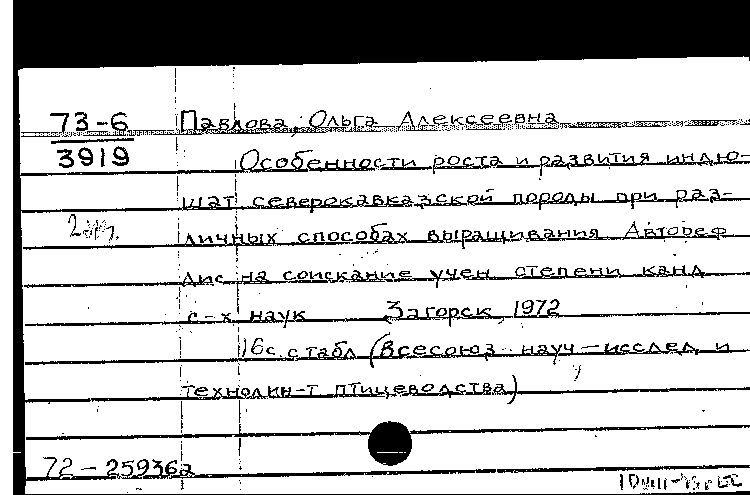 73-6 Павлова, Ольга Алексеевна
3919 Особенности роста и развития индю-
шат северокавказской породы при раз-
2 экз. личных способах выращивания Автореф
дис на соискание учен степени канд
с-х наук Загорск, 1972
16с. с табл (Всесоюз. науч-исслед и
технол ин-т птицеводства)
72-259362